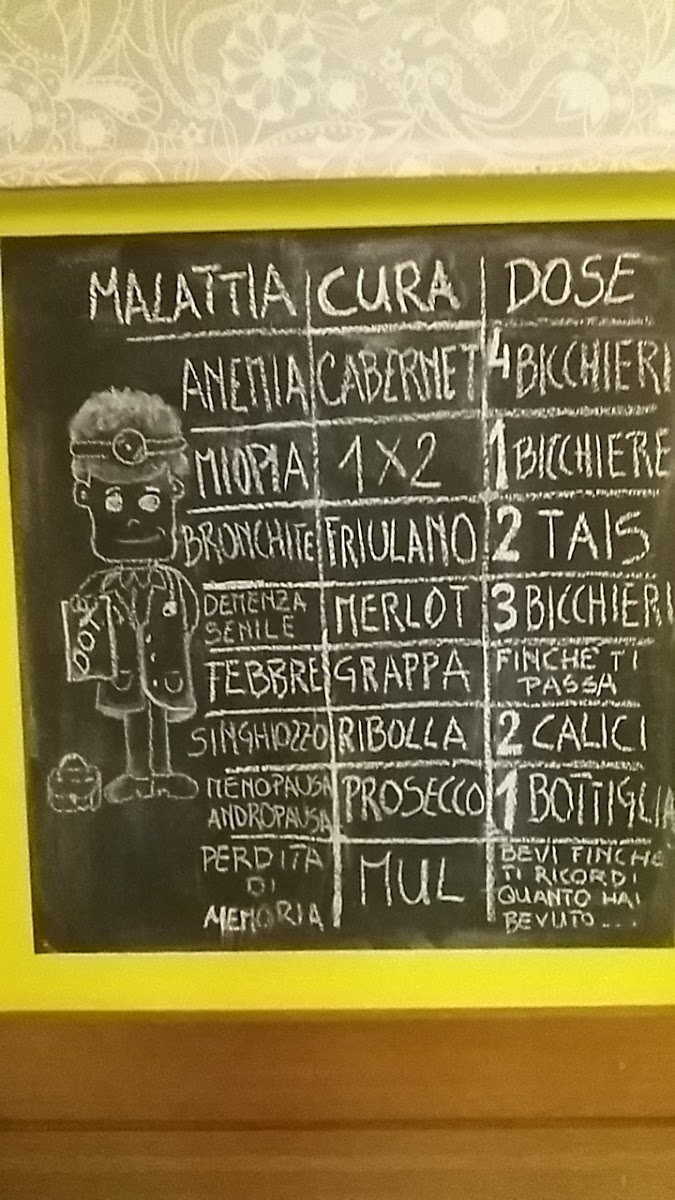 MALATTIA CURA DOSE
ANEMIA CABERNET 4 BICCHIERI
MIOPIA 1X2 1 BICCHIERE
BRONCHITE FRIULANO 2 TAIS
DEMENZA
SENILE MERLOT 3 BICCHIERI
FEBBRE GRAPPA FINCHÈ TI
PASSA
SINGHIOZZO RIBOLLA 2 CALICI
MENOPAUSA
ANDROPAUSA PROSECCO 1 BOTTIGLIA
PERDITA
DI
MEMORIA MUL BEVI FINCHE
TI RICORDI
QUANTO HAI
BEVUTO...
DOT